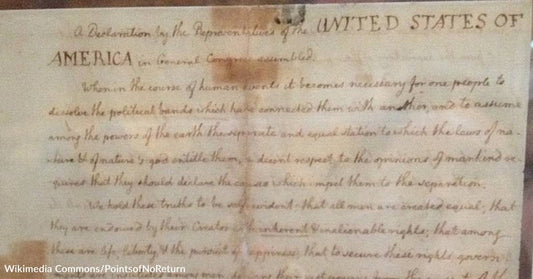 A Declaration by the Representatives of the UNITED STATES OF
AMERICA in General Congress assembled.
When in the course of human events it becomes necessary for one people to
dissolve the political bands which have connected them with another, and to assume
among the powers of the earth the separate and equal station to which the laws of na-
ture & of nature's god entitle them, a decent respect to the opinions of mankind re-
quires that they should declare the causes which impel them to the separation.
We hold these truths to be self evident: that all men are created equal; that
they are endowed by their Creator with inherent & inalienable rights; that among
these are life, liberty, & the pursuit of happiness; that to secure these rights, govern-
Wikimedia Commons/PointsofNoReturn